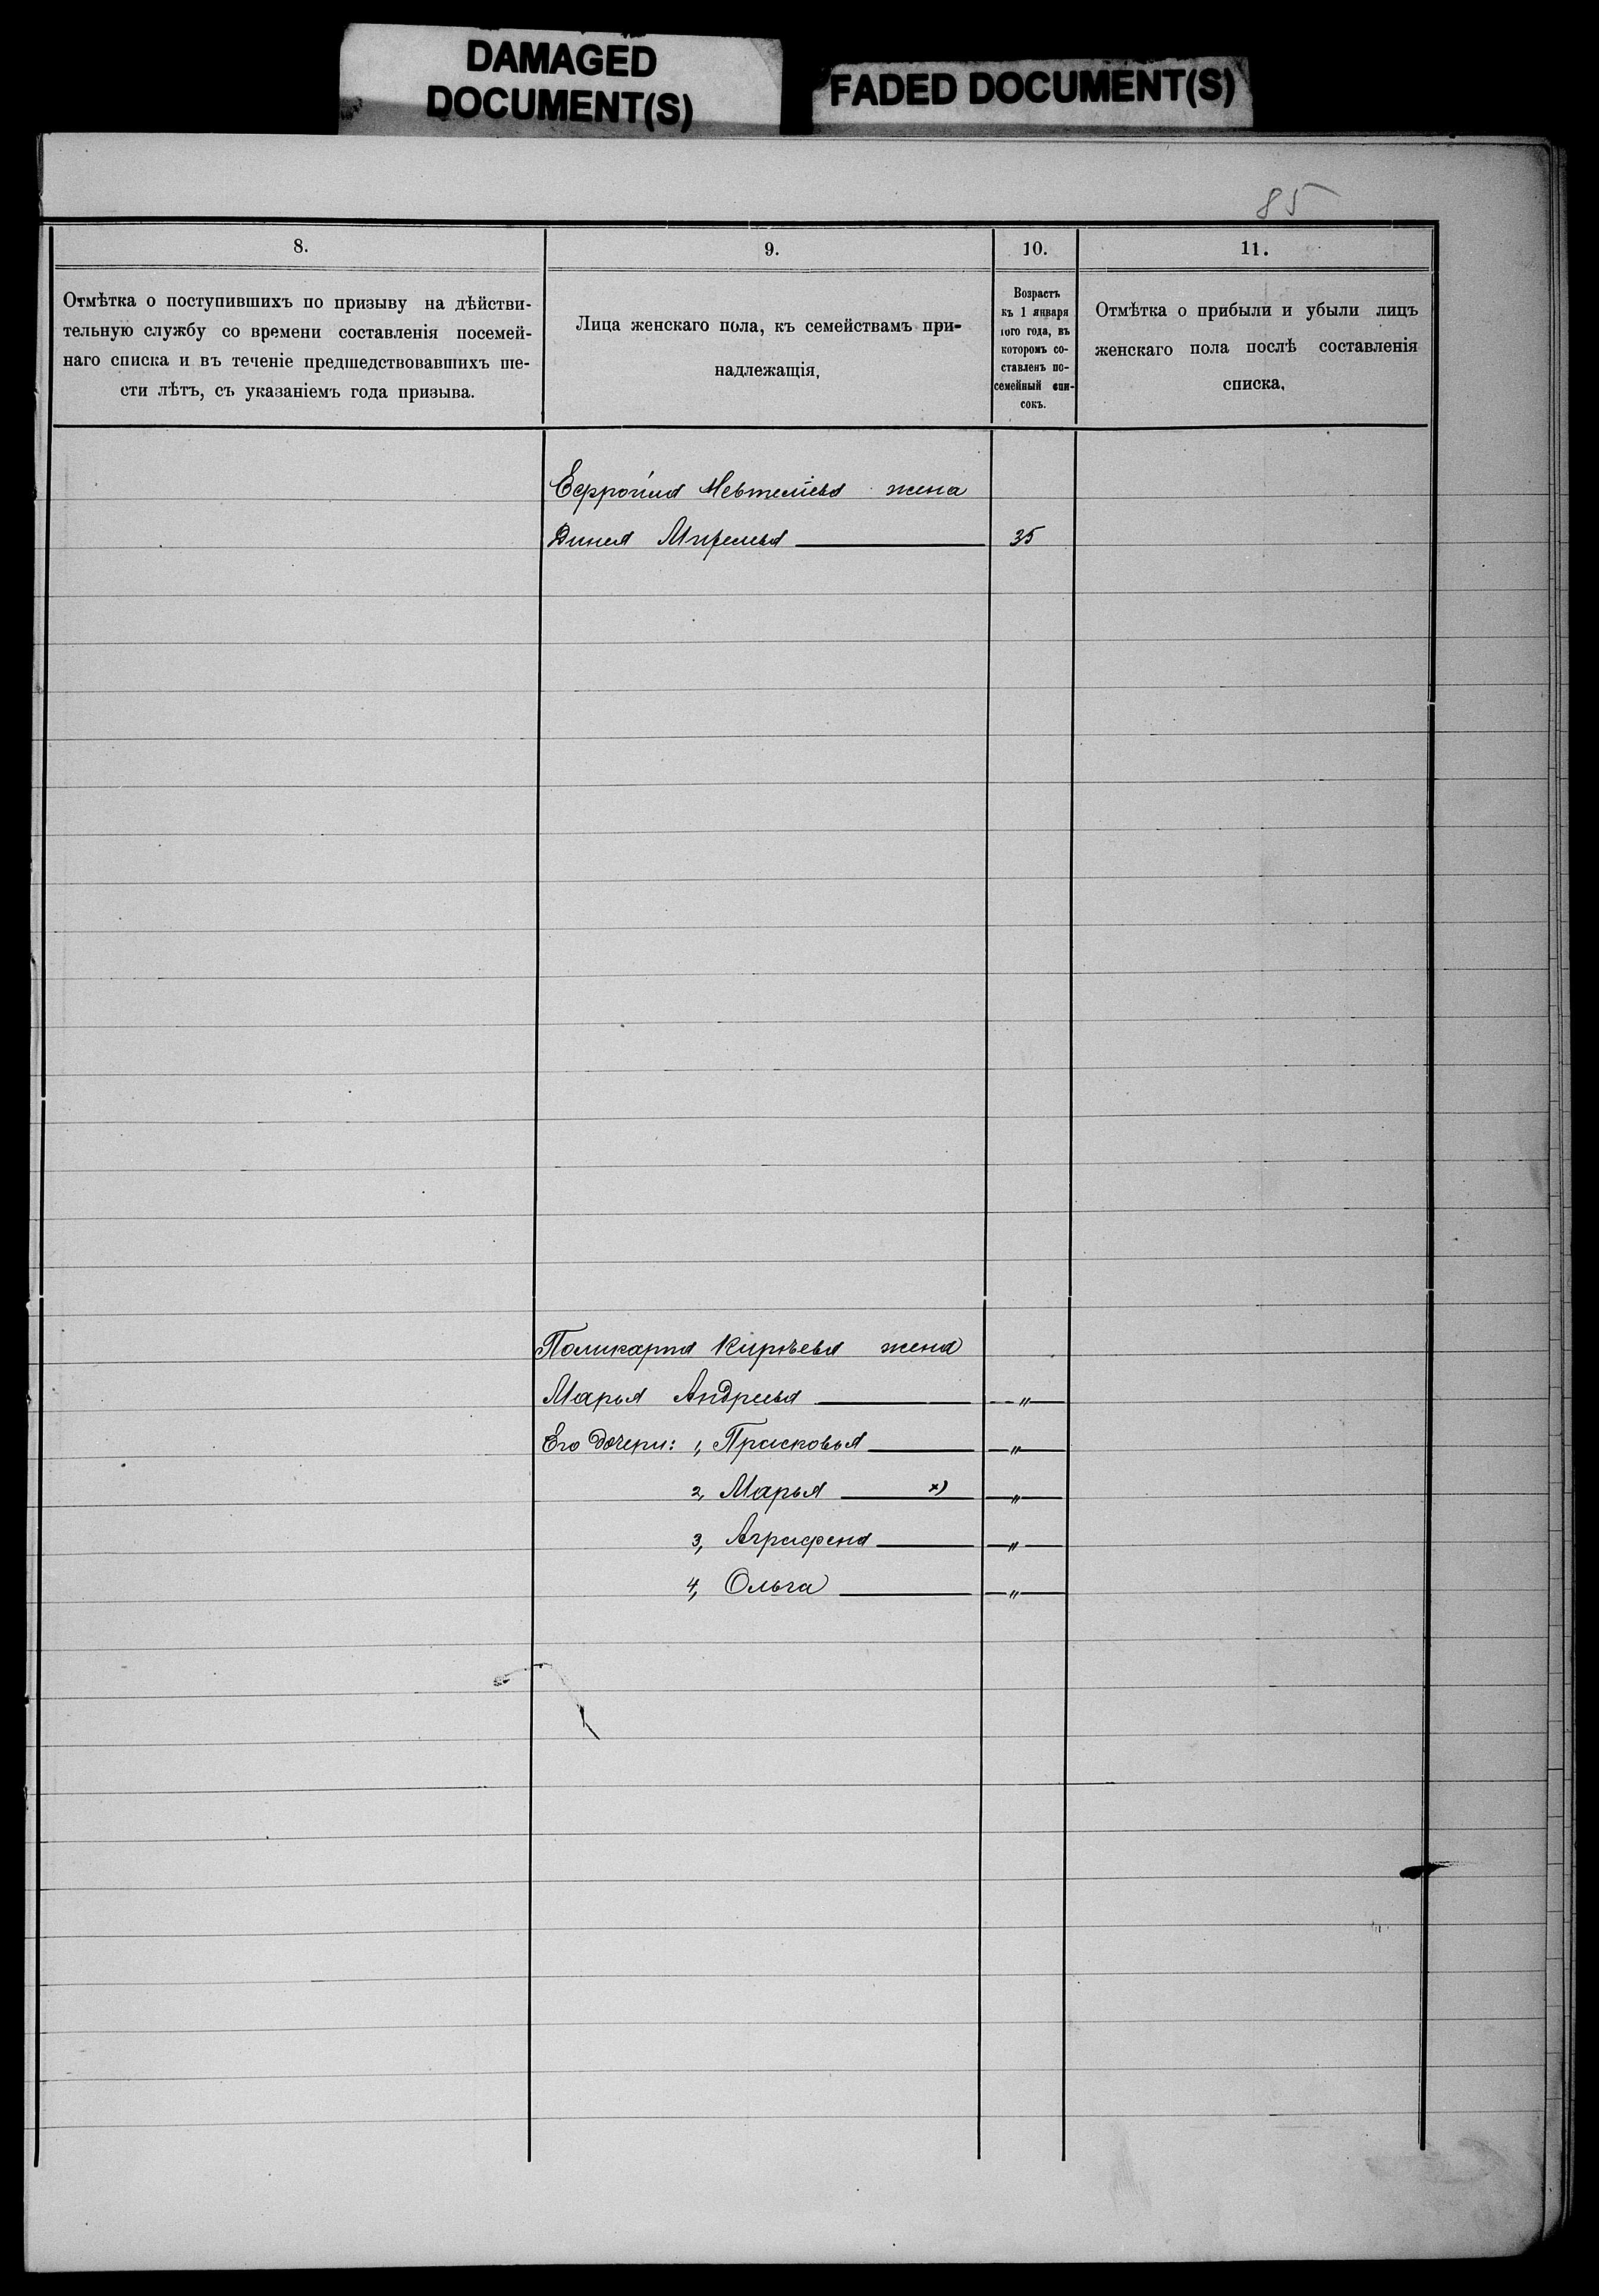 DAMAGED
DOCUMENT(S)
FADED DOCUMENT(S)
85
8.
9.
10.
11.
Отмѣтка о поступившихъ по призыву на дѣйстви-
тельную службу со времени составленія посемей-
наго списка и въ теченіе предшедствовавшихъ ше-
сти лѣтъ, съ указаніемъ года призыва.
Лица женскаго пола, къ семействамъ при-
надлежащія.
Возрастъ
къ 1 января
того года, въ
которомъ со-
ставленъ по-
семейный спи-
сокъ.
Отмѣтка о прибыли и убыли лицъ
женскаго пола послѣ составленія
списка.
жена
35
Поликарпа Кирѣева жена
Марья Андреева "
Его дочери: 1, Прасковья "
2, Марья х) "
3, Аграфена "
4, Ольга "